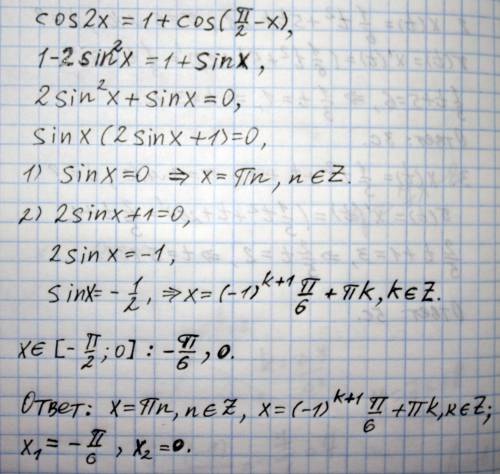 cos2x = 1 + cos(π/2 − x),
1 − 2sin²x = 1 + sinx,
2sin²x + sinx = 0,
sinx(2sinx + 1) = 0,
1) sinx = 0 ⇒ x = πn, n ∈ Z.
2) 2sinx + 1 = 0,
2sinx = −1,
sinx = −1/2, ⇒ x = (−1)^(k+1) π/6 + πk, k ∈ Z.
x ∈ [−π/2; 0] : −π/6, 0.
Ответ: x = πn, n ∈ Z, x = (−1)^(k+1) π/6 + πk, k ∈ Z;
x₁ = −π/6, x₂ = 0.